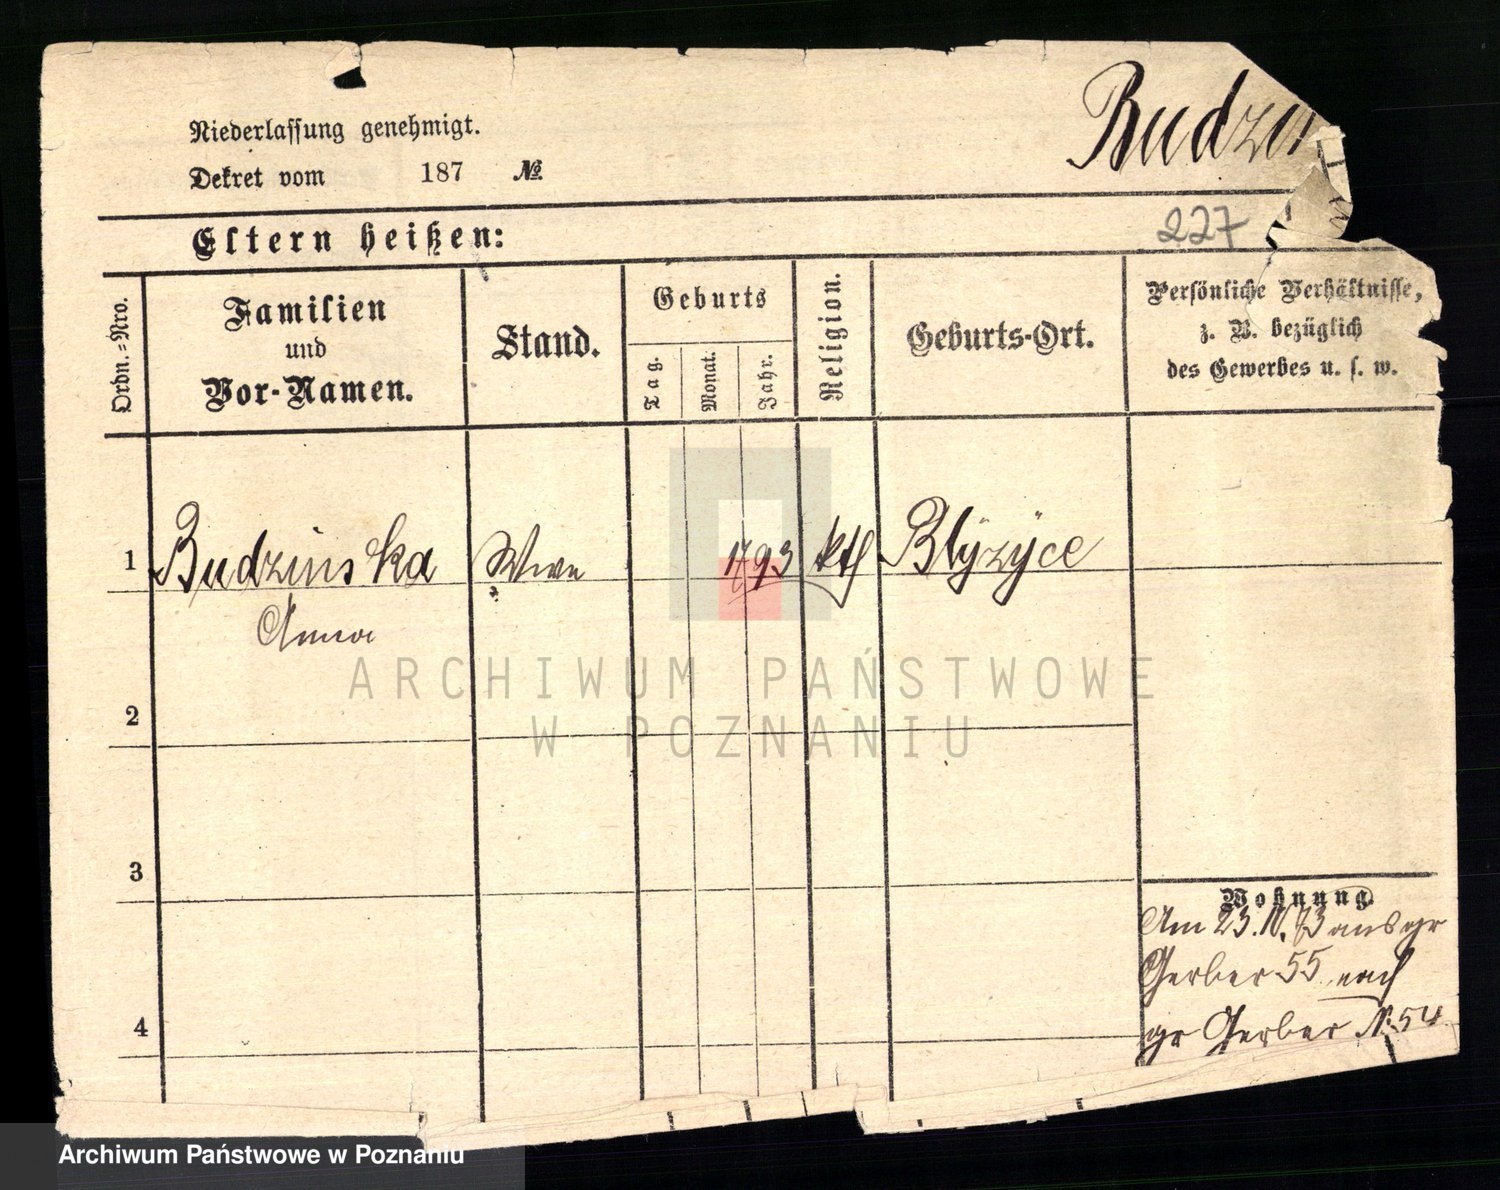 Niederlassung genehmigt.
Dekret vom 187 №
Budzin
227
Eltern heißen:
Ordn.=Nro.
Familien
und
Vor-Namen.
Stand.
Geburts
Tag.
Monat.
Jahr.
Religion.
Geburts-Ort.
Persönliche Verhältnisse,
z. B. bezüglich
des Gewerbes u. s. w.
1 Budzinska Wwe 1793 kth Blÿzÿce
Anna
2
3
4
Wohnung.
Am 23.IV.73 aus gr
Gerber 55 nach
gr Gerber N. 54
ARCHIWUM PAŃSTWOWE
W POZNANIU
Archiwum Państwowe w Poznaniu